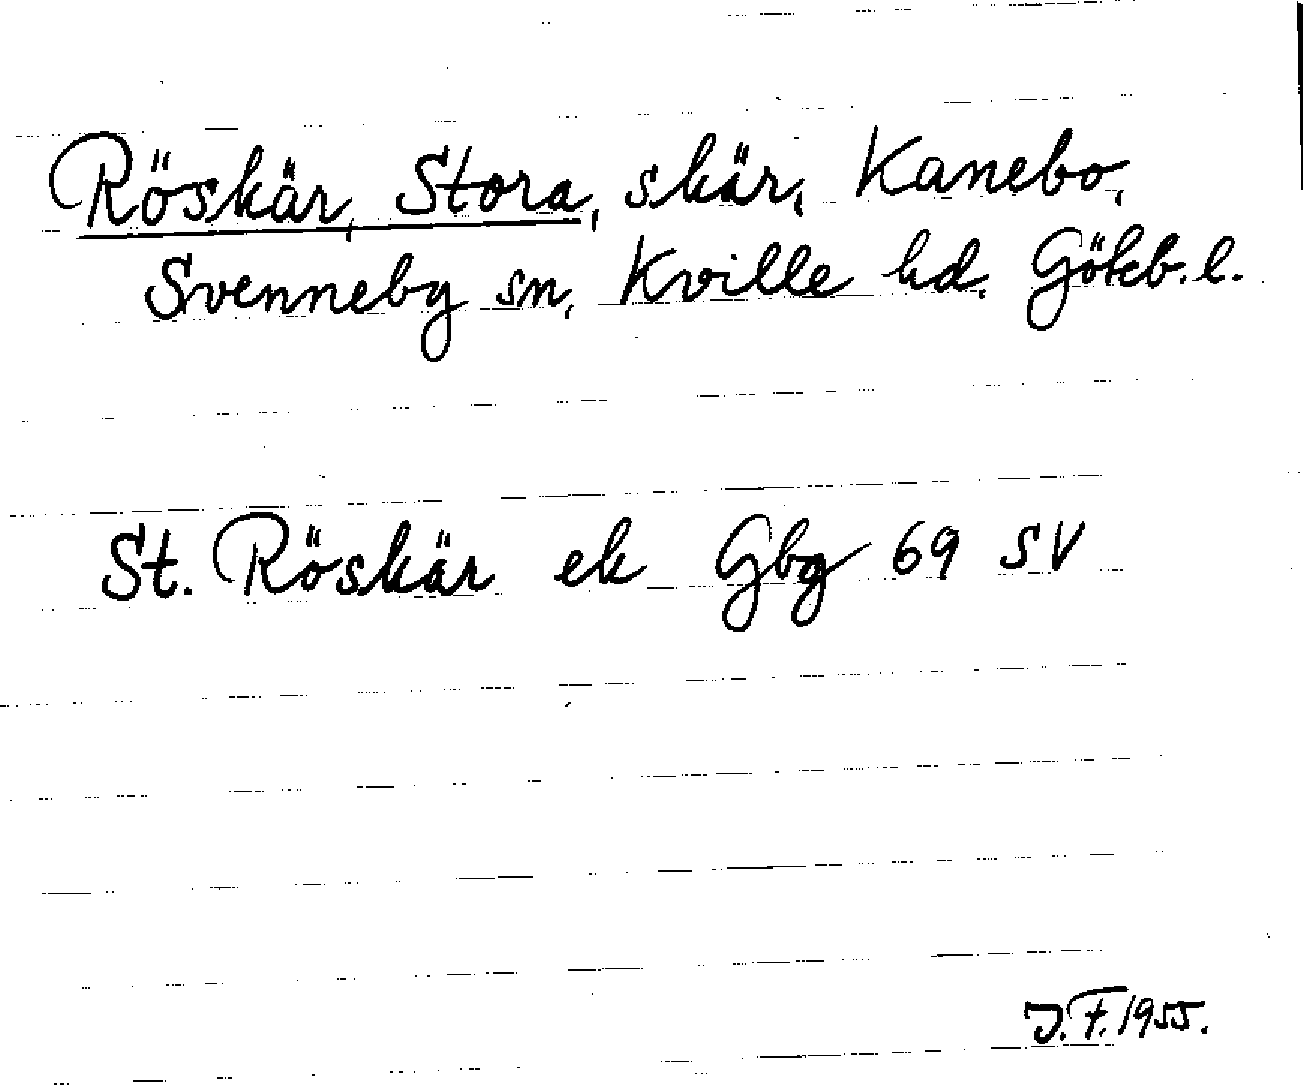 Röskär, Stora, skär, Kanebo,
Svenneby sn, Kville hd, Götcb. l.
St. Röskär ek Gbg 69 SV
J.F. 1955.